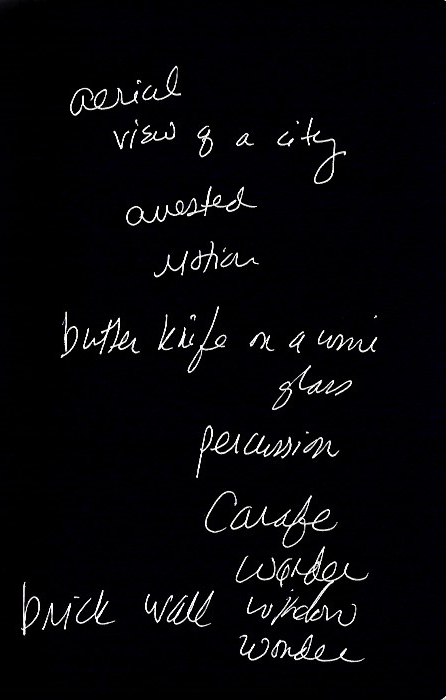 aerial
view of a city
arrested
motion
butter knife on a wine
glass
percussion
Carafe
wonder
brick wall window
wonder